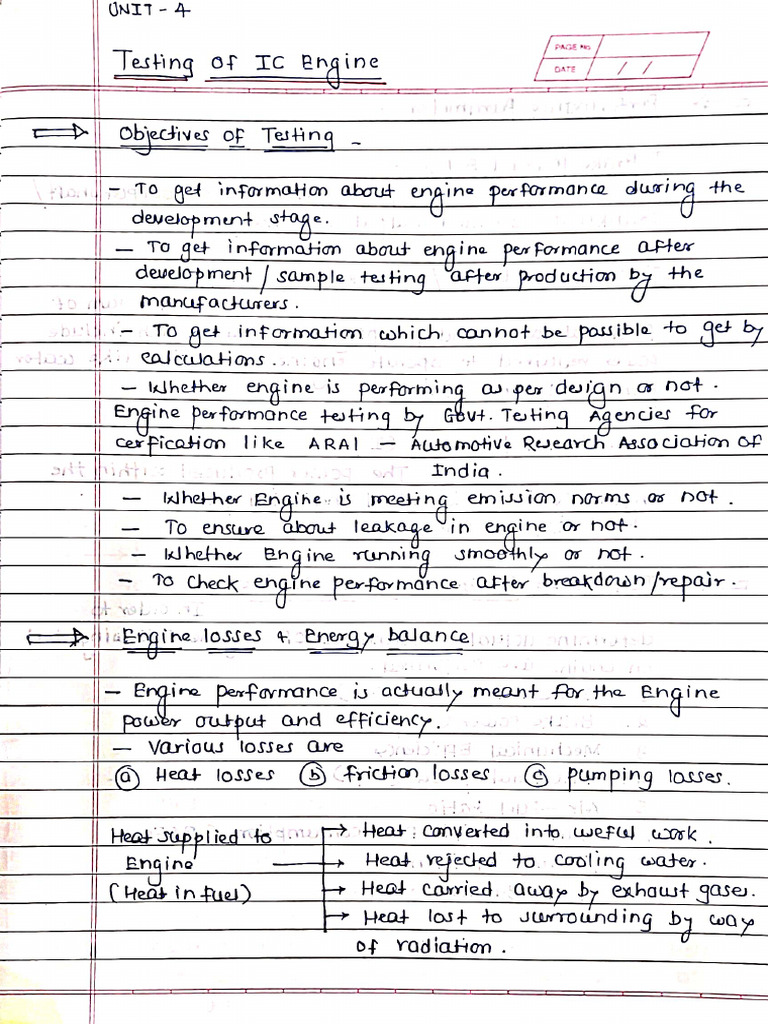 UNIT - 4
Testing of IC Engine
PAGE No
DATE / /
⇒ Objectives of Testing -
- To get information about engine performance during the
development stage.
- To get information about engine performance after
development / sample testing after production by the
manufacturers.
- To get information which cannot be possible to get by
calculations.
- Whether engine is performing as per design or not.
Engine performance testing by Govt. Testing Agencies for
cerfication like ARAI - Automotive Research Association of
India.
- Whether Engine is meeting emission norms or not.
- To ensure about leakage in engine or not.
- Whether Engine running smoothly or not.
- To check engine performance after breakdown/repair.
⇒ Engine losses & Energy balance
- Engine performance is actually meant for the Engine
power output and efficiency.
- Various losses are
ⓐ Heat losses ⓑ friction losses ⓒ pumping losses.
Heat supplied to → Heat converted into useful work.
Engine → Heat rejected to cooling water.
(Heat in fuel) → Heat carried away by exhaust gases.
→ Heat lost to surrounding by way
of radiation.